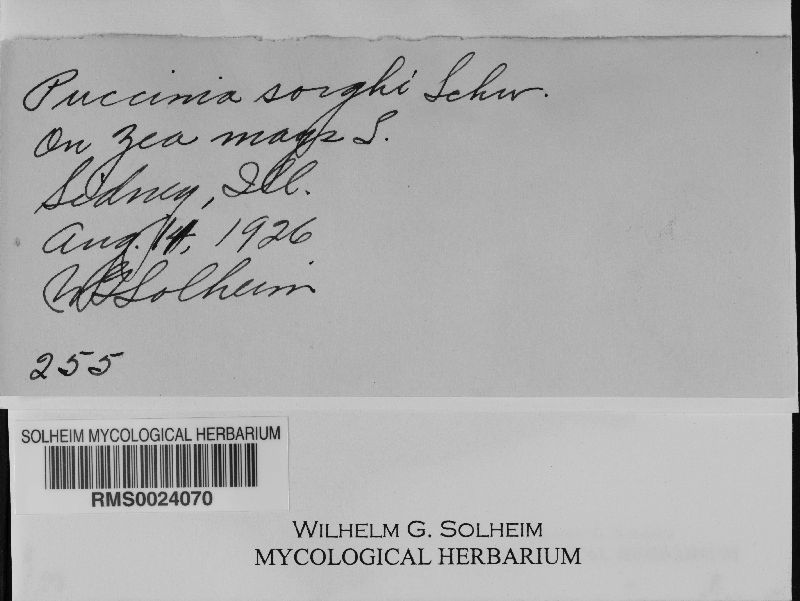 Puccinia sorghi Schw.
On Zea mays L.
Sidney, Ill.
Aug. 14, 1926
WG Solheim
255
SOLHEIM MYCOLOGICAL HERBARIUM
RMS0024070
WILHELM G. SOLHEIM
MYCOLOGICAL HERBARIUM